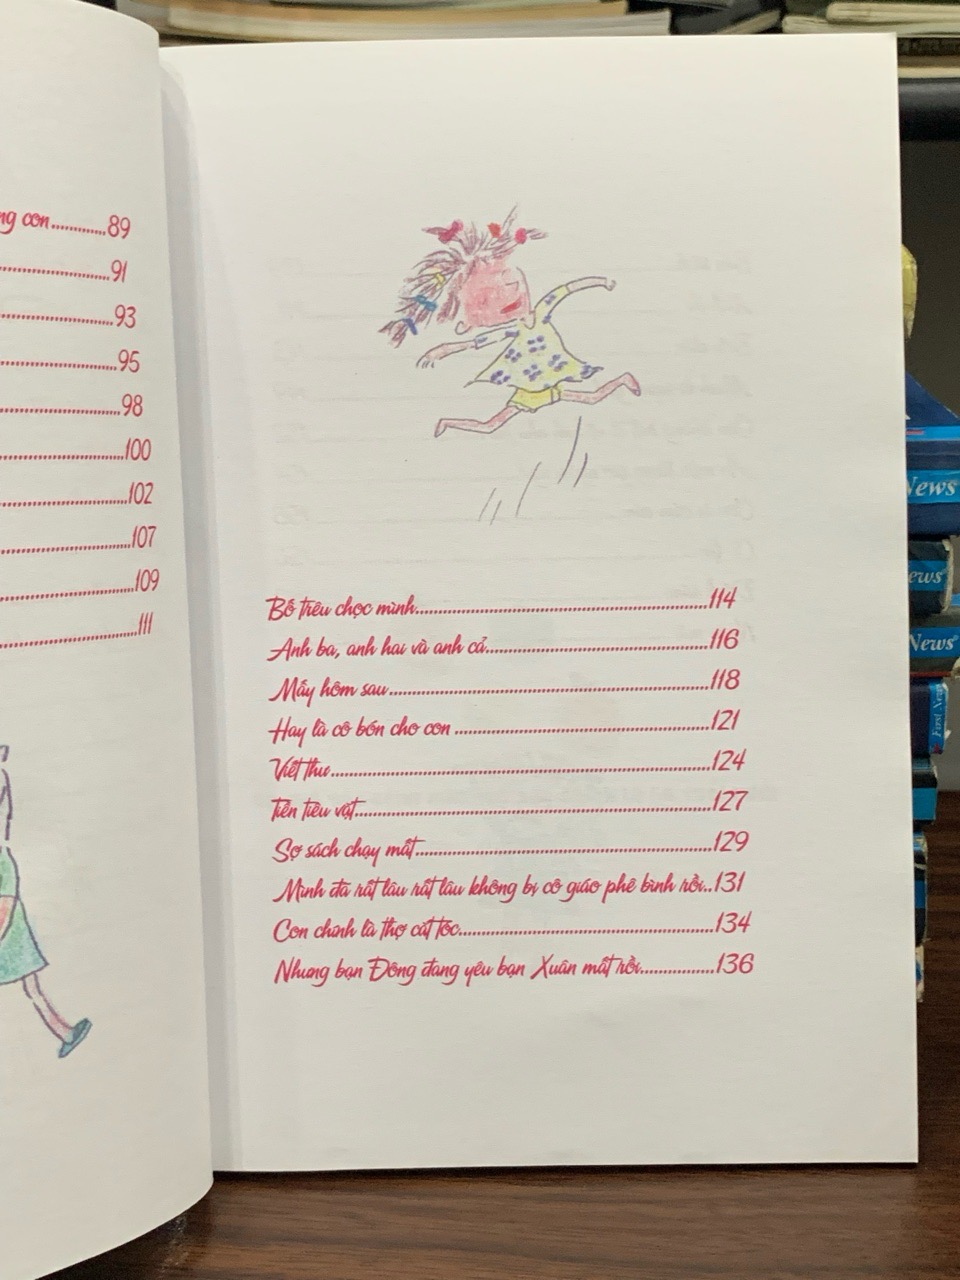 ng con............89
91
93
95
98
100
102
107
109
111
Bố trêu chọc mình............114
Anh ba, anh hai và anh cả............116
Mấy hôm sau............118
Hay là cô bón cho con............121
Viết thư............124
Tiền tiêu vặt............127
Sợ sách chạy mất............129
Mình đã rất lâu rất lâu không bị cô giáo phê bình rồi..131
Con chính là thợ cắt tóc............134
Nhưng bạn Đông đang yêu bạn Xuân mất rồi............136
News
ews
News
First News